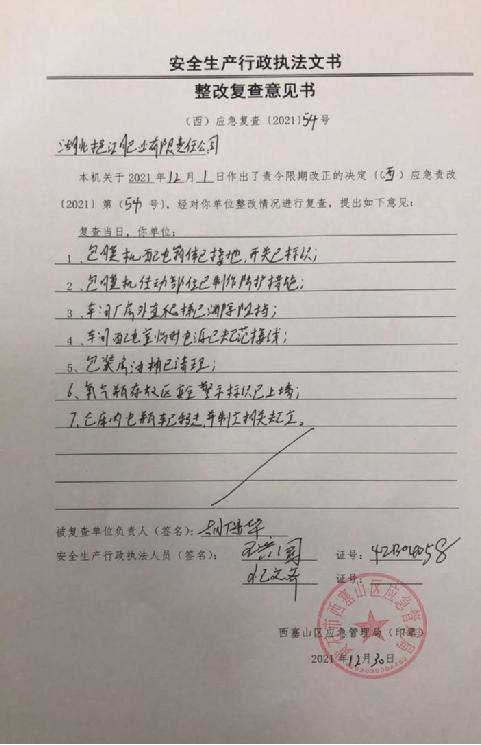 安全生产行政执法文书
整改复查意见书
（西）应急复查〔2021〕54号
湖北 肥业有限责任公司
本机关于 2021 年 12 月 1 日作出了责令限期改正的决定〔（西）应急责改
〔2021〕第（54 号）、经对你单位整改情况进行复查，提出如下意见：
复查当日，你单位：
1、包膜机配电箱体已接地，开关已标识；
2、包膜机传动部位已制作防护措施；
3、车间厂房外直爬梯已 ；
4、车间配电室临时电源已规范接线；
5、包装 油桶已清理；
6、氧气瓶存放区安全警示标识已上墙；
7、仓库内电瓶车已移走，并制定相关规定。
被复查单位负责人（签名）：
安全生产行政执法人员（签名）： 证号：
证号：
西塞山区应急管理局（印章）
2021 年 12月 30日